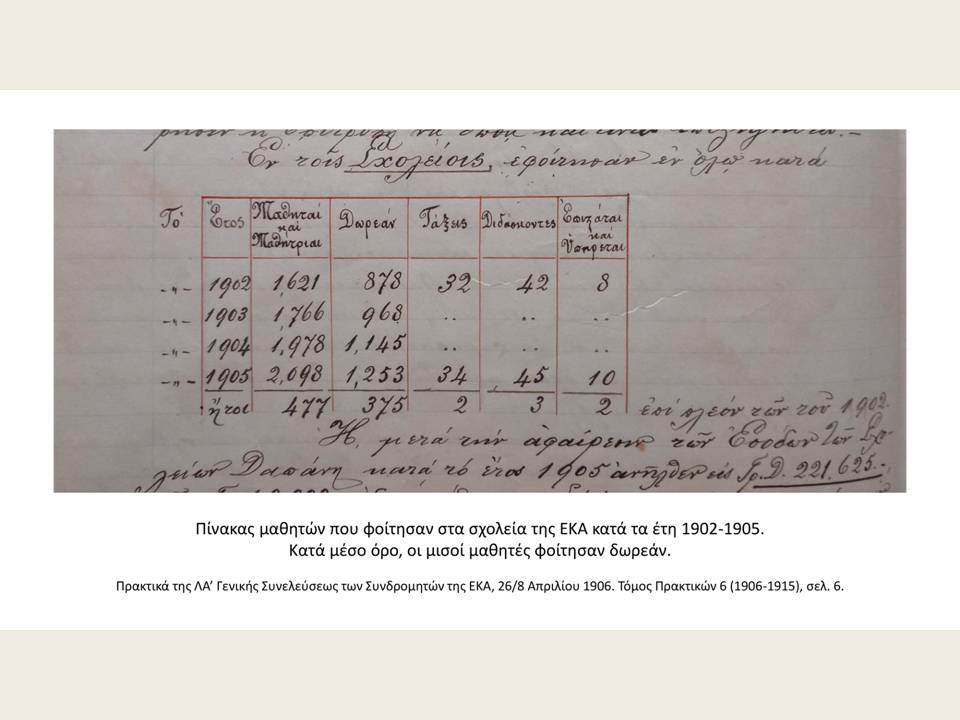 Ἐν τοῖς Σχολείοις, ἐφοίτησαν ἐν ὅλῳ κατὰ
Τὸ Ἔτος Μαθηταὶ καὶ Μαθήτριαι Δωρεάν Τάξεις Διδάσκοντες Ἐπιστάται καὶ Ὑπηρέται
-"- 1902 1,621 878 32 42 8
-"- 1903 1,766 968 .. .. ..
-"- 1904 1,978 1,145 .. .. ..
-"- 1905 2,098 1,253 34 45 10
ἤτοι 477 375 2 3 2 ἐπὶ πλέον τῶν τοῦ 1902
Ἡ, μετὰ τὴν ἀφαίρεσιν τῶν Ἐσόδων τῶν Σχο-
λείων Δαπάνη κατὰ τὸ ἔτος 1905 ἀνῆλθεν εἰς Γρ.Δ. 221.625.-
Πίνακας μαθητών που φοίτησαν στα σχολεία της ΕΚΑ κατά τα έτη 1902-1905.
Κατά μέσο όρο, οι μισοί μαθητές φοίτησαν δωρεάν.
Πρακτικά της ΛΑ’ Γενικής Συνελεύσεως των Συνδρομητών της ΕΚΑ, 26/8 Απριλίου 1906. Τόμος Πρακτικών 6 (1906-1915), σελ. 6.